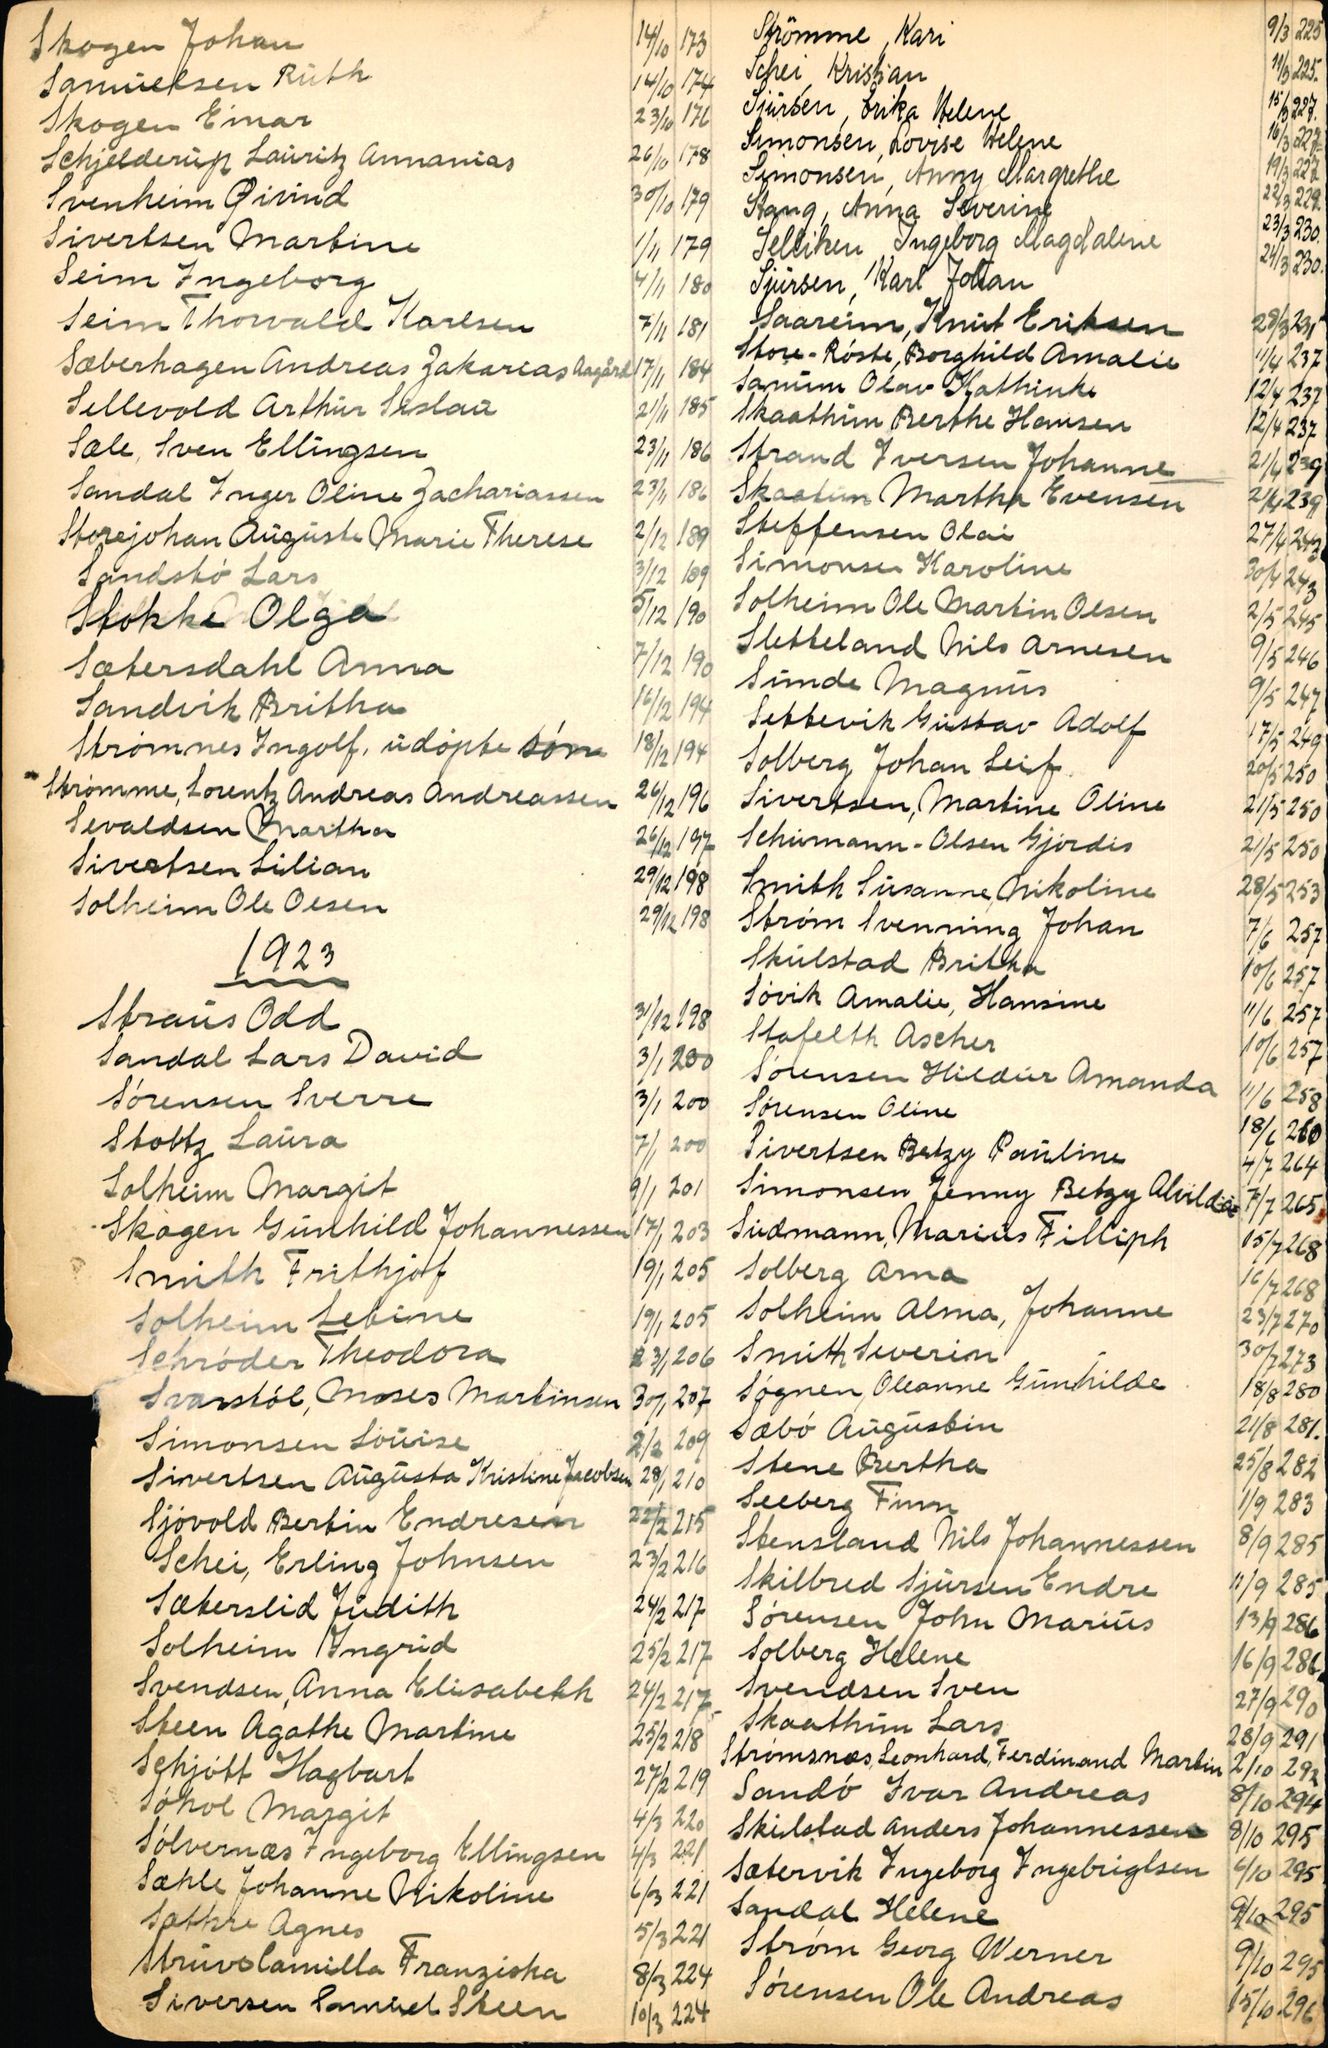 Skogen Johan 14/10 173
Samuelsen Ruth 14/10 174
Skogen Einar 23/10 176
Schjelderup Lauritz Annanias 26/10 178
Svenheim Øivind 30/10 179
Sivertsen Martine 1/11 179
Seim Ingeborg 4/11 180
Seim Thorvald Karlsen 7/11 181
Sæberhagen Andreas Zakarias Aagård 17/11 184
Sellevold Arthur 21/11 185
Sæle, Sven Ellingsen 23/11 186
Sandal Inger Oline Zachariassen 23/11 186
Storejohan Auguste Marie Therese 2/12 189
Sandstø Lars 3/12 189
Stokke Olga 5/12 190
Sætersdahl Anna 7/12 190
Sandvik Britha 16/12 194
Strømnes Ingolf, udöpte sön 18/12 194
Strømme, Lorentz Andreas Andreassen 26/12 196
Sevaldsen Martha 26/12 197
Sivertsen Lilian 29/12 198
Solheim Ole Olsen 29/12 198
1923
Straus Odd 31/12 198
Sandal Lars David 3/1 200
Sörensen Sverre 3/1 200
Stoltz Laura 7/1 200
Solheim Margit 9/1 201
Skogen Gunhild Johannessen 17/1 203
Smith Frithjof 19/1 205
Solheim Sebine 19/1 205
Schröder Theodora 23/1 206
Svarstöl, Moses Martinsen 30/1 207
Simonsen Louise 2/2 209
Sivertsen Augusta Kristine Jacobsen 28/1 210
Sjövold Bertin Endresen 22/2 215
Schei, Erling Johnsen 23/2 216
Sæterslid Judith 24/2 217
Solheim Ingrid 25/2 217
Svendsen, Anna Elisabeth 24/2 217
Steen Agathe Martine 25/2 218
Schjött Hagbart 27/2 219
Söhol Margit 4/3 220
Sölvernæs Ingeborg Ellingsen 4/3 221
Sæhle Johanne Nikoline 6/3 221
Sæthre Agnes 5/3 221
Struve Camilla Franziska 8/3 224
Siversen Samuel Steen 10/3 224
Strömme, Kari 9/3 225
Schei, Kristian 11/3 225.
Sjursen, Erika Helene 15/3 227.
Simonsen, Lovise Helene 16/3 227
Simonsen, Anny Margrethe 19/3 227
Stang, Anna Severine 22/3 229.
Selliken, Ingeborg Magdalene 23/3 230.
Sjursen, Karl Johan 24/3 230.
Saareim, Knut Eriksen 28/3 231
Store-Röste, Borghild Amalie 11/4 237
Sanum Olav Kathinka 12/4 237
Skaathun Berthe Hansen 12/4 237
Strand Iversen Johanne 21/4 239
Skaatun Martha Evensen 21/4 239
Steffensen Olai 27/4 243
Simonsen Karoline 30/4 243
Solheim Ole Martin Olsen 2/5 245
Sletteland Nils Arnesen 9/5 246
Sunde Magnus 9/5 247
Settevik Gustav Adolf 17/5 249
Solberg Johan Leif 20/5 250
Sivertsen, Martine Oline 21/5 250
Schumann-Olsen Gjördis 21/5 250
Smith Susanne Nikoline 28/5 253
Ström Svenning Johan 7/6 257
Skulstad Britha 10/6 257
Sövik Amalie, Hansine 11/6 257
Stofelth Ascher 10/6 257
Sörensen Hildur Amanda 11/6 258
Sörensen Oline 18/6 260
Sivertsen Betzy Pauline 4/7 264
Simonsen Jenny Betzy Alvilda 7/7 265
Sudmann, Marius Filliph 15/7 268
Solberg Arna 16/7 268
Solheim Alma, Johanne 23/7 270
Smith Severin 30/7 273
Søgnen, Oleanne Gunhilde 18/8 280
Sæbö Augustin 21/8 281.
Stene Bertha 25/8 282
Seeberg Finn 1/9 283
Stensland Nils Johannessen 8/9 285
Skilbred Sjursen Endre 11/9 285
Sörensen John Marius 13/9 286
Solberg Helene 16/9 286
Svendsen Sven 27/9 290
Skaathun Lars 28/9 291
Strømsnæs, Leonhard, Ferdinand Martin 2/10 292
Sandö Ivar Andreas 8/10 294
Skulstad Anders Johannessen 8/10 295
Sætervik Ingeborg Ingebrigtsen 6/10 295
Sandal Helene 9/10 295
Ström Georg Werner 9/10 295
Sörensen Ole Andreas 15/10 296